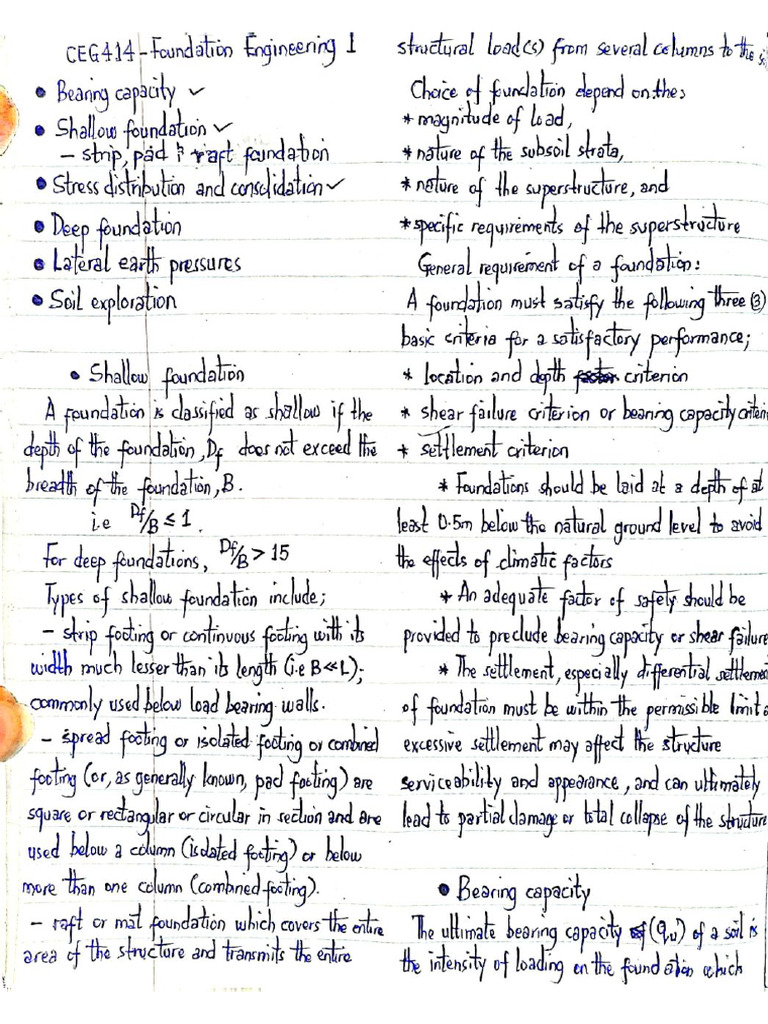 CEG414-Foundation Engineering 1
• Bearing capacity ✓
• Shallow foundation ✓
- strip, pad & raft foundation
• Stress distribution and consolidation ✓
• Deep foundation
• Lateral earth pressures
• Soil exploration
• Shallow foundation
A foundation is classified as shallow if the
depth of the foundation, Df does not exceed the
breadth of the foundation, B.
i.e Df/B ≤ 1.
For deep foundations, Df/B > 15
Types of shallow foundation include;
- strip footing or continuous footing with its
width much lesser than its length (i.e B<<L);
commonly used below load bearing walls.
- spread footing or isolated footing or combined
footing (or, as generally known, pad footing) are
square or rectangular or circular in section and are
used below a column (isolated footing) or below
more than one column (combined footing).
- raft or mat foundation which covers the entire
area of the structure and transmits the entire
structural load(s) from several columns to the s
Choice of foundation depend on the:
* magnitude of load,
* nature of the subsoil strata,
* nature of the superstructure, and
* specific requirements of the superstructure
General requirement of a foundation:
A foundation must satisfy the following three (3)
basic criteria for a satisfactory performance;
* location and depth criterion
* shear failure criterion or bearing capacity criteri
* settlement criterion
* Foundations should be laid at a depth of at
least 0.5m below the natural ground level to avoid
the effects of climatic factors
* An adequate factor of safety should be
provided to preclude bearing capacity or shear failure
* The settlement, especially differential settlemen
of foundation must be within the permissible limit
excessive settlement may affect the structure
serviceability and appearance, and can ultimately
lead to partial damage or total collapse of the structure
• Bearing capacity
The ultimate bearing capacity (qu) of a soil is
the intensity of loading on the foundation which